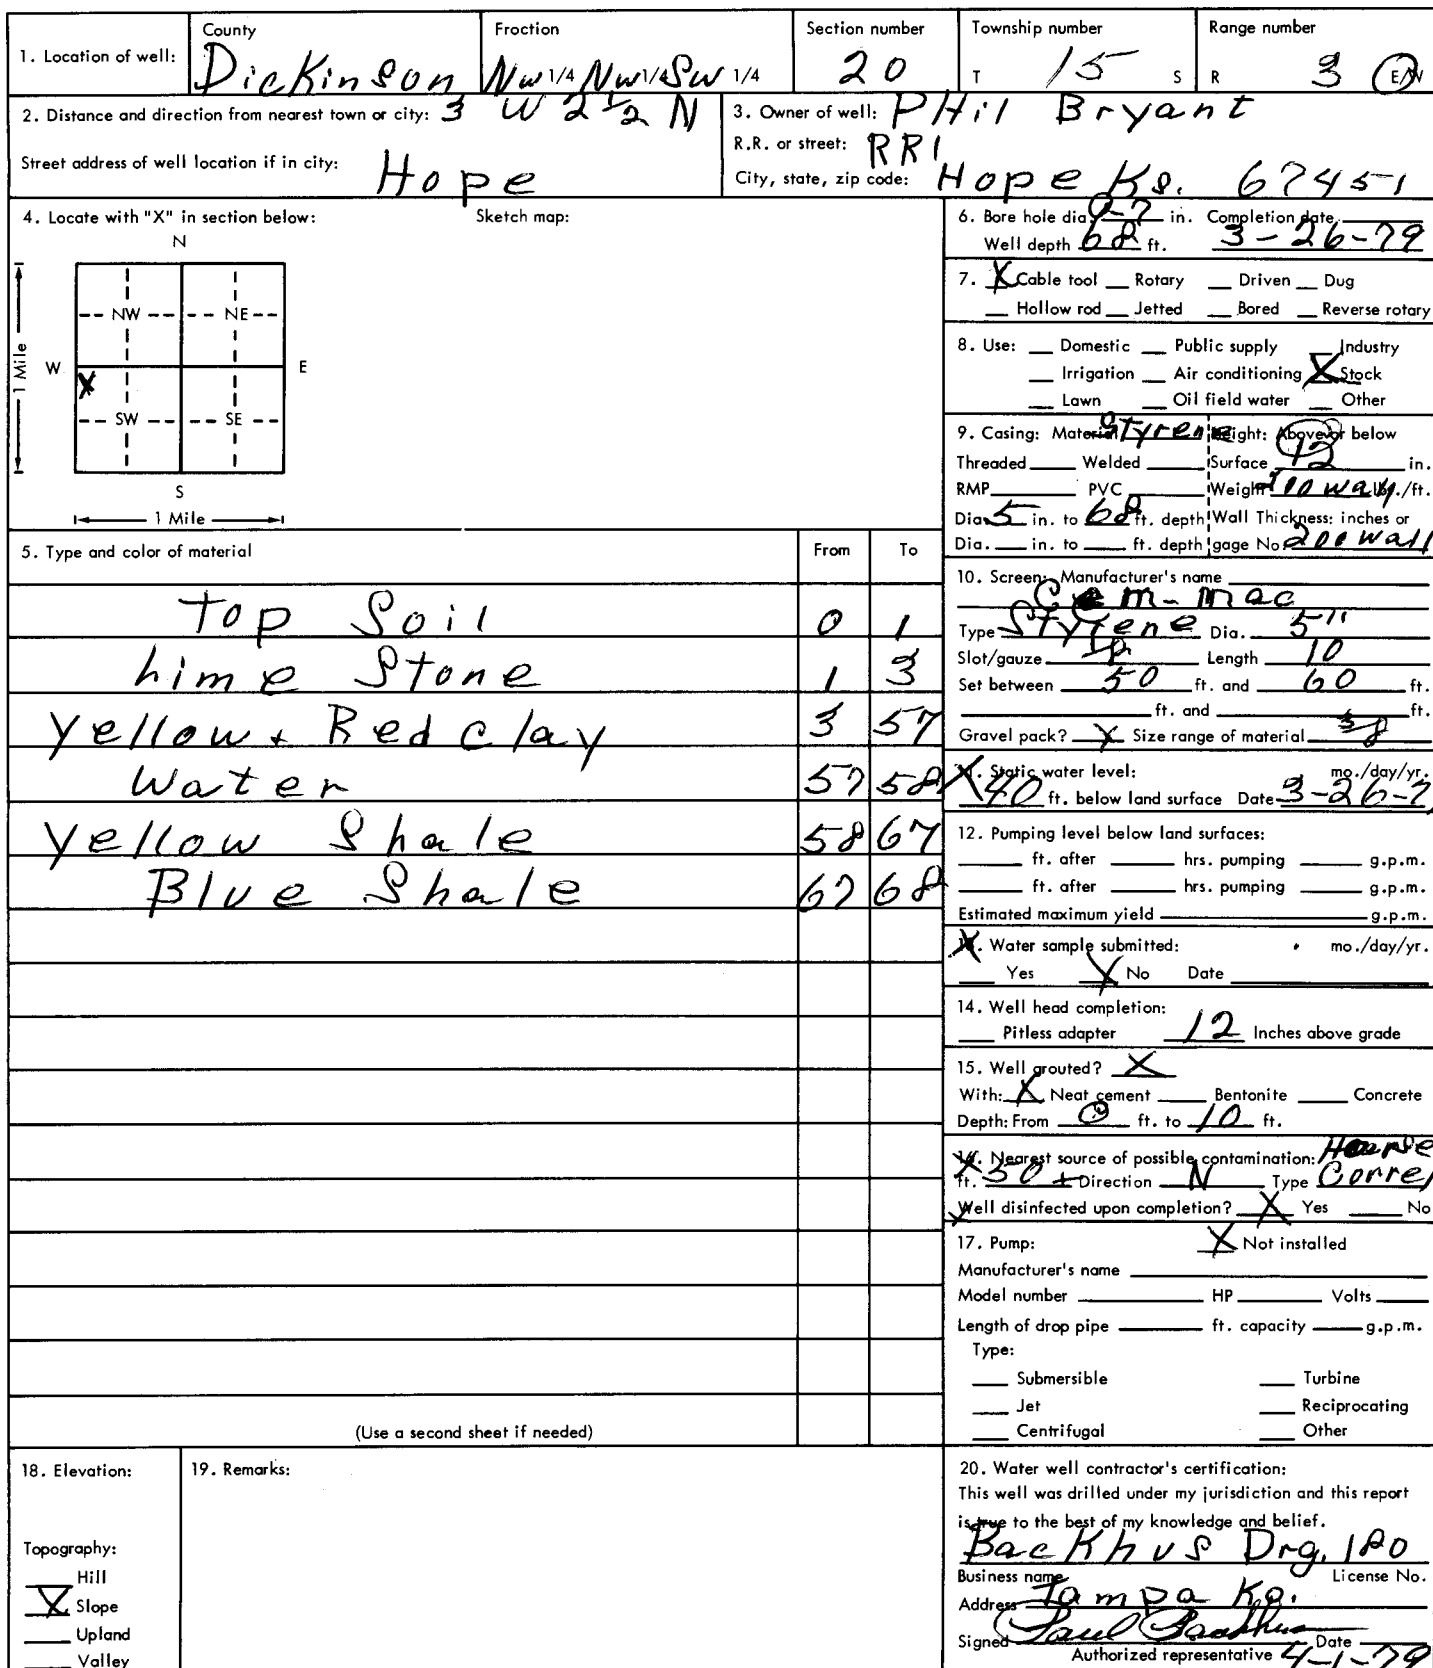 County Fraction Section number Township number Range number
1. Location of well: Dickinson Nw 1/4 Nw 1/4 Sw 1/4 20 T 15 S R 3 E/W
2. Distance and direction from nearest town or city: 3 W 2 1/2 N
Street address of well location if in city: Hope
3. Owner of well: PHil Bryant
R.R. or street: RR1
City, state, zip code: Hope Ks. 67451
4. Locate with "X" in section below: Sketch map:
N
NW NE
W E
X
SW SE
S
1 Mile
1 Mile
5. Type and color of material From To
Top Soil 0 1
Lime Stone 1 3
Yellow + Red clay 3 57
Water 57 58
Yellow Shale 58 67
Blue Shale 67 68
(Use a second sheet if needed)
6. Bore hole dia. 9-7 in. Completion date
Well depth 68 ft. 3-26-79
7. X Cable tool Rotary Driven Dug
Hollow rod Jetted Bored Reverse rotary
8. Use: Domestic Public supply Industry
Irrigation Air conditioning X Stock
Lawn Oil field water Other
9. Casing: Material Styrene Height: Above or below
Threaded Welded Surface 12 in.
RMP PVC Weight 200 wall lbs./ft.
Dia. 5 in. to 68 ft. depth Wall Thickness: inches or
Dia. in. to ft. depth gage No. 200 wall
10. Screen: Manufacturer's name
mac
Type Styrene Dia. 5"
Slot/gauze Length 10
Set between 50 ft. and 60 ft.
ft. and ft.
Gravel pack? X Size range of material 3/8
11. Static water level: mo./day/yr.
X 40 ft. below land surface Date 3-26-7
12. Pumping level below land surfaces:
ft. after hrs. pumping g.p.m.
ft. after hrs. pumping g.p.m.
Estimated maximum yield g.p.m.
X Water sample submitted: mo./day/yr.
Yes X No Date
14. Well head completion:
Pitless adapter 12 Inches above grade
15. Well grouted? X
With: X Neat cement Bentonite Concrete
Depth: From 0 ft. to 10 ft.
16. Nearest source of possible contamination:
ft. 50 + Direction N Type Correl
Well disinfected upon completion? X Yes No
17. Pump: X Not installed
Manufacturer's name
Model number HP Volts
Length of drop pipe ft. capacity g.p.m.
Type:
Submersible Turbine
Jet Reciprocating
Centrifugal Other
18. Elevation:
Topography:
Hill
X Slope
Upland
Valley
19. Remarks:
20. Water well contractor's certification:
This well was drilled under my jurisdiction and this report
is true to the best of my knowledge and belief.
Backhus Drg. 180
Business name License No.
Address Tampa Ks.
Signed Paul Backhus Date
Authorized representative 4-1-79